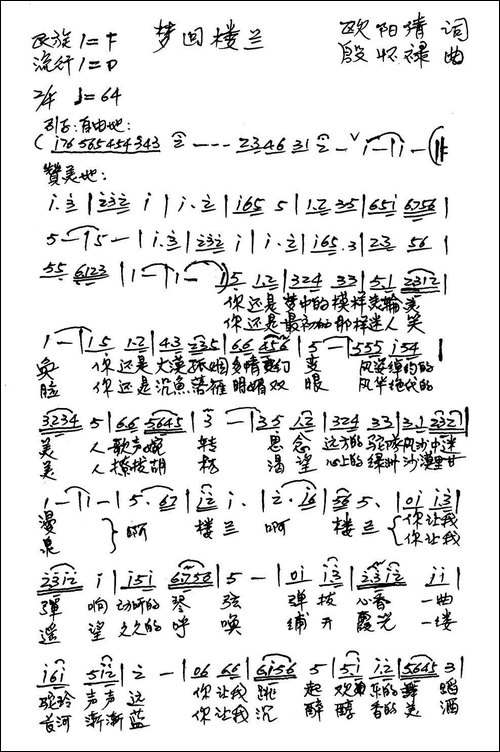 民族1=F 梦回楼兰 欧阳靖 词
流行1=D 殷怀禄 曲
2/4 ♩=64
引子:自由地:
( i76 565 454 343 2 - - - - 2346 31 2 - ∨ i - | i - (‖
赞美地:
i. 3 | 232 i | i. 2 | i65 5 | 1.2 35 | 65i 6756 |
5 - | 5 - | i. 3 | 232 i | i. 2 | i65. 3 | 23 56 |
55 6123 | 1 - | 1 - | 1 ) 5 1.2 | 324 33 | 5.1 2312 |
你还是梦中的模样美轮美
你还是最初的那样迷人笑
1 - | 1 5 1.2 | 4.3 235 | 6.6 456 | 5 - | 555 i54 |
奂 你还是大漠孤烟多情 变 风姿绰约的
脸 你还是沉鱼落雁明媚双 眼 风华绝代的
3234 5 | 6.6 5645 | 3 - | 3.5 1.2 | 324 33 | 3.1 232 |
美 人歌声婉 转 思念 远方的驼队风沙中迷
美 人 胡 杨 渴望 心上的绿洲沙漠里甘
1 - | 1 - | 5. 67 | i2 i. | 2. i6 | 56 5. | 0i i3 |
漫 } 啊 楼兰 啊 楼兰 { 你让我
泉 你让我
23i2 i | i5i 6756 | 5 - | 0i i3 | 23i2 ii |
弹 响动听的琴 弦 弹拨 心香 一曲
遥 望久久的呼 唤 铺开 霞光 一缕
i6i 5i2 | 2 - | 06 66 | 6i56 5 | 5.i i.2 | 5645 3 |
驼铃 声声 远 你让我 跳 起 欢乐的舞 蹈
黄河 渐渐 蓝 你让我 沉 醉 醇香的美 酒